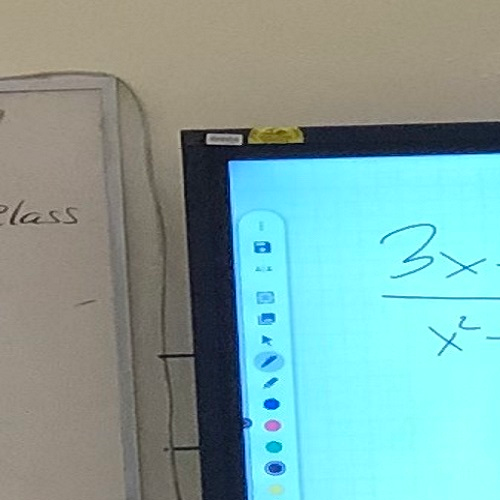 class
3x-
x²-